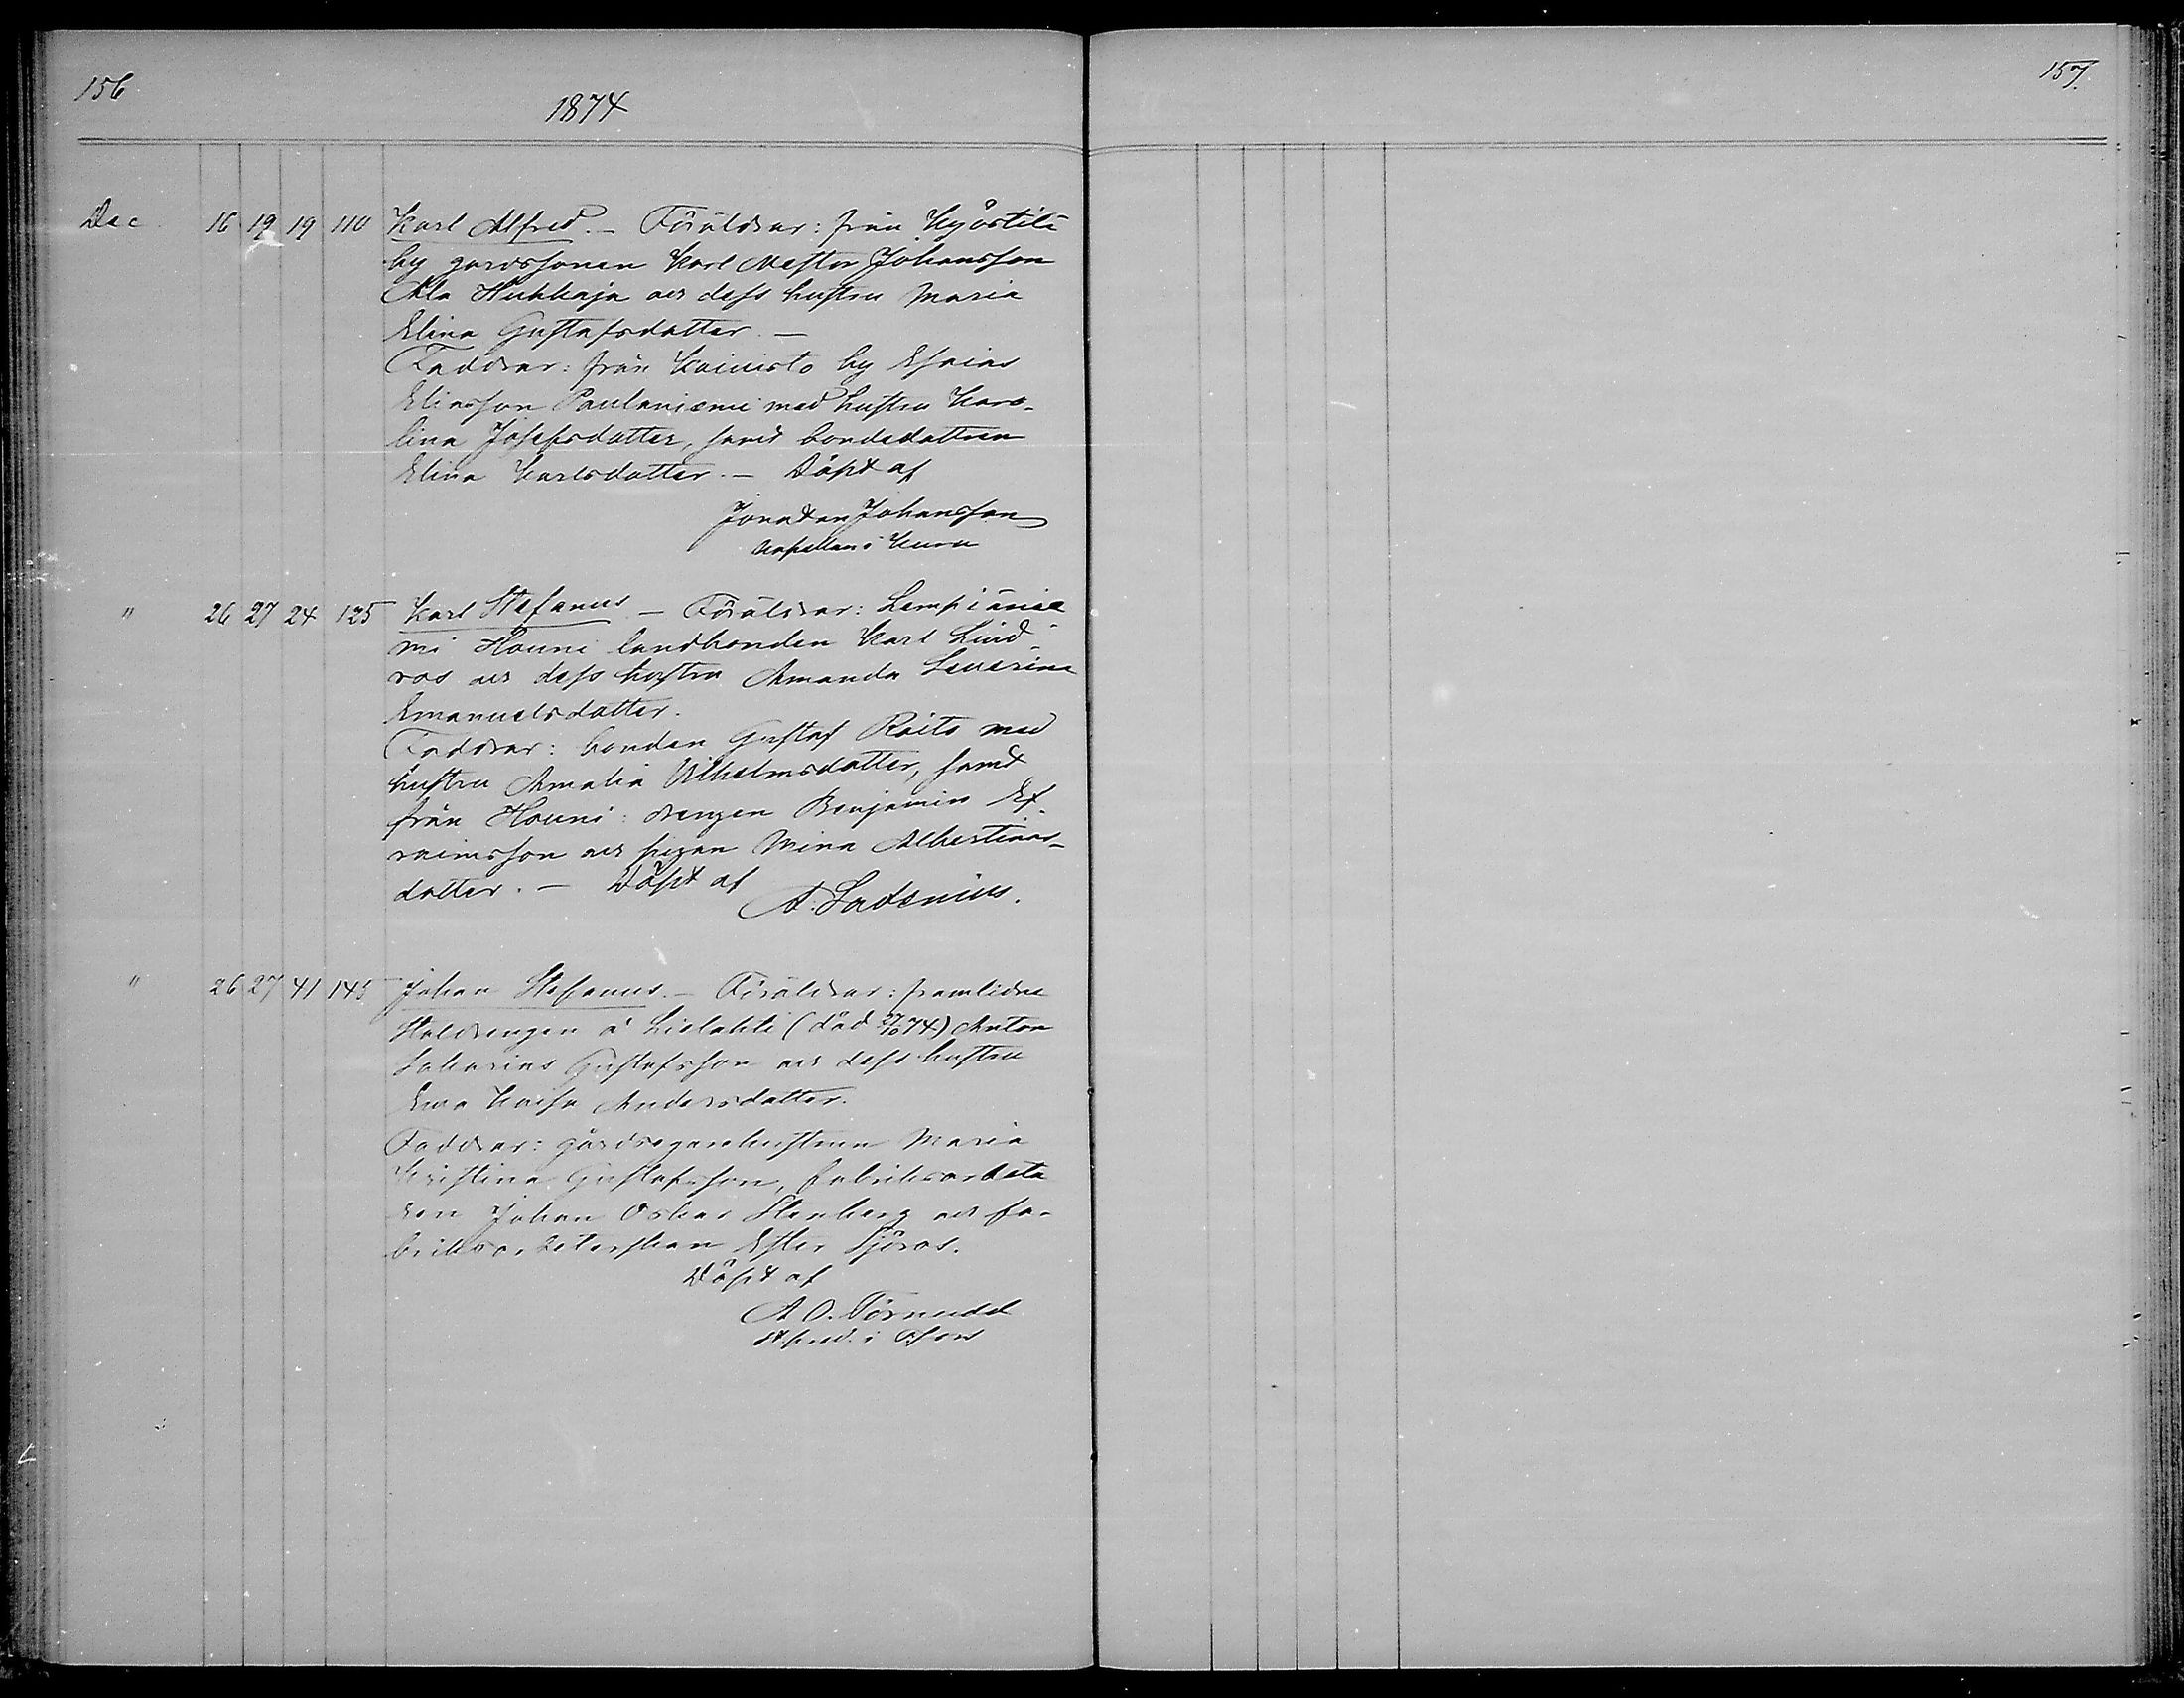 156
1874
157.
Dec. 16 19 19 110 Karl Alfred. — Föräldrar: från Kyöstilä
by gårdssonen Karl Nestor Johansson
Ala Hukkaja och dess hustru Maria
Elina Gustafsdotter. —
Faddrar: från Koivisto by Esaias
Eliasson Paulaniemi med hustru Karo-
lina Josefsdotter, samt bondedottren
Elina Karlsdotter. — Döpt af
Jonatan Johansson
Kapellan i
" 26 27 24 125 Karl Stefanus. — Föräldrar: Lempiänie
mi Houni landbonden Karl Lind-
ros och dess hustru Amanda Severina
Emanuelsdotter.
Faddrar: bonden Gustaf Raito med
hustru Amalia Vilhelmsdotter, samt
från Houni: drengen Benjamin Ef-
raimsson och pigan Mina Albertina-
dotter. — Döpt af
A. Ladenius.
" 26 27 41 145 Johan Stefanus. — Föräldrar: framlidne
Staldrengen å Lielahti (död 27/10 74) Anton
Sakarias Gustafsson och dess hustru
Eva Kaisa Andersdotter.
Faddrar: gårdsegarehustrun Maria
Kristina Gustafsson, fabriksarbeta
ren Johan Oskar Stenberg och fa-
briksarbeterskan Ester Sjöros.
Döpt af
A. O. Törnudd